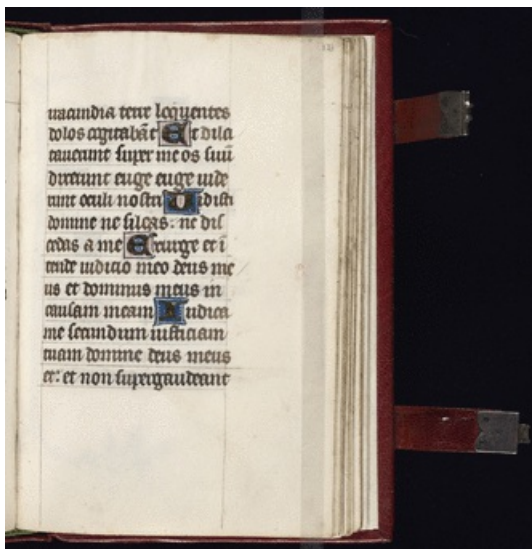 iracundia terre loquentes
dolos cogitabāt Et dila
tauerunt super me os suū
dixerunt euge euge uide
runt oculi nostri Uidisti
domine ne sileas: ne dis
cedas a me Exurge et ī
tende iudicio meo deus me
us et dominus meus in
causam meam Iudica
me secundum iusticiam
tuam domine deus meus
et: et non supergaudeant